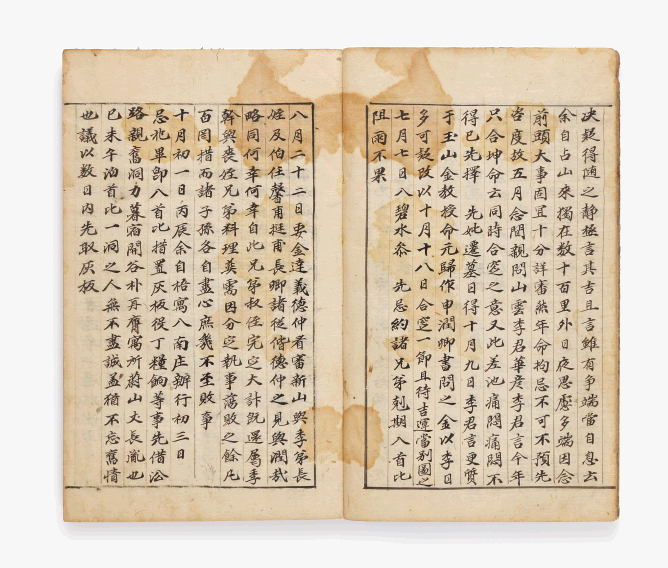 決疑得隨之靜極言其吉且言雖有爭端當自息云
余自占山來獨在數十百里外日夜思慮多端因念
前頭大事固宜十分詳審然年命拘忌不可不預先
咨度故五月念間親問山雲李君華度李君言今年
只合坤命云同時合窆之意又此差池痛悶痛悶不
得已先擇 先妣遷墓日得十月九日李君言更質
于玉山金敎授命元歸作申潤卿書問之金以李日
多可疑改以十月十八日合窆一節且待吉運當別圖之
七月七日入碧水參 先忌約諸兄弟剋期入首比
阻雨不果
八月二十二日要金達義德仲看審新山與季弟長
姪及伯任馨甫挺甫長卿諸從偕德仲之見與潤哉
略同何幸何幸自此兄弟叔侄完定大計旣還屬季
幹與喪侄兄弟料理葬需因分定執事蕩敗之餘凡
百罔措而諸子孫各自盡心庶幾不至敗事
十月初一日丙辰余自格寓入南庄辦行初三日
忌祀畢卽入首比措置灰板役丁糧餉等事先借
路親舊洞力暮宿開谷朴 膺寓所蔚山丈長胤也
已未午泊首比一洞之人無不盡誠孟 猶不忘舊情
也議以數日內先取灰板